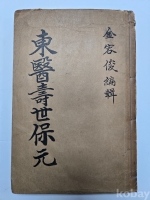 東醫壽世保元
金容俊編輯
kobay